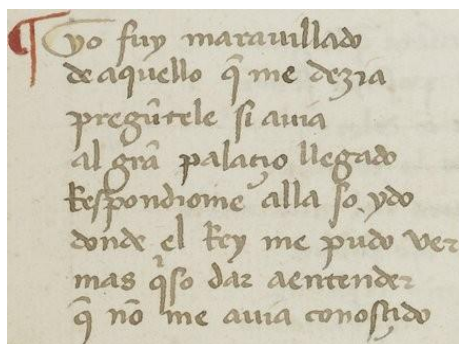 ¶ yo fuy marauillado
de aquello q̃ me dezia
pregũtele si auia
al grã palaçio llegado
Respondiome alla so ydo
donde el Rey me pudo ver
mas q̃so dar aentender
q̃ nõ me auia conosçido